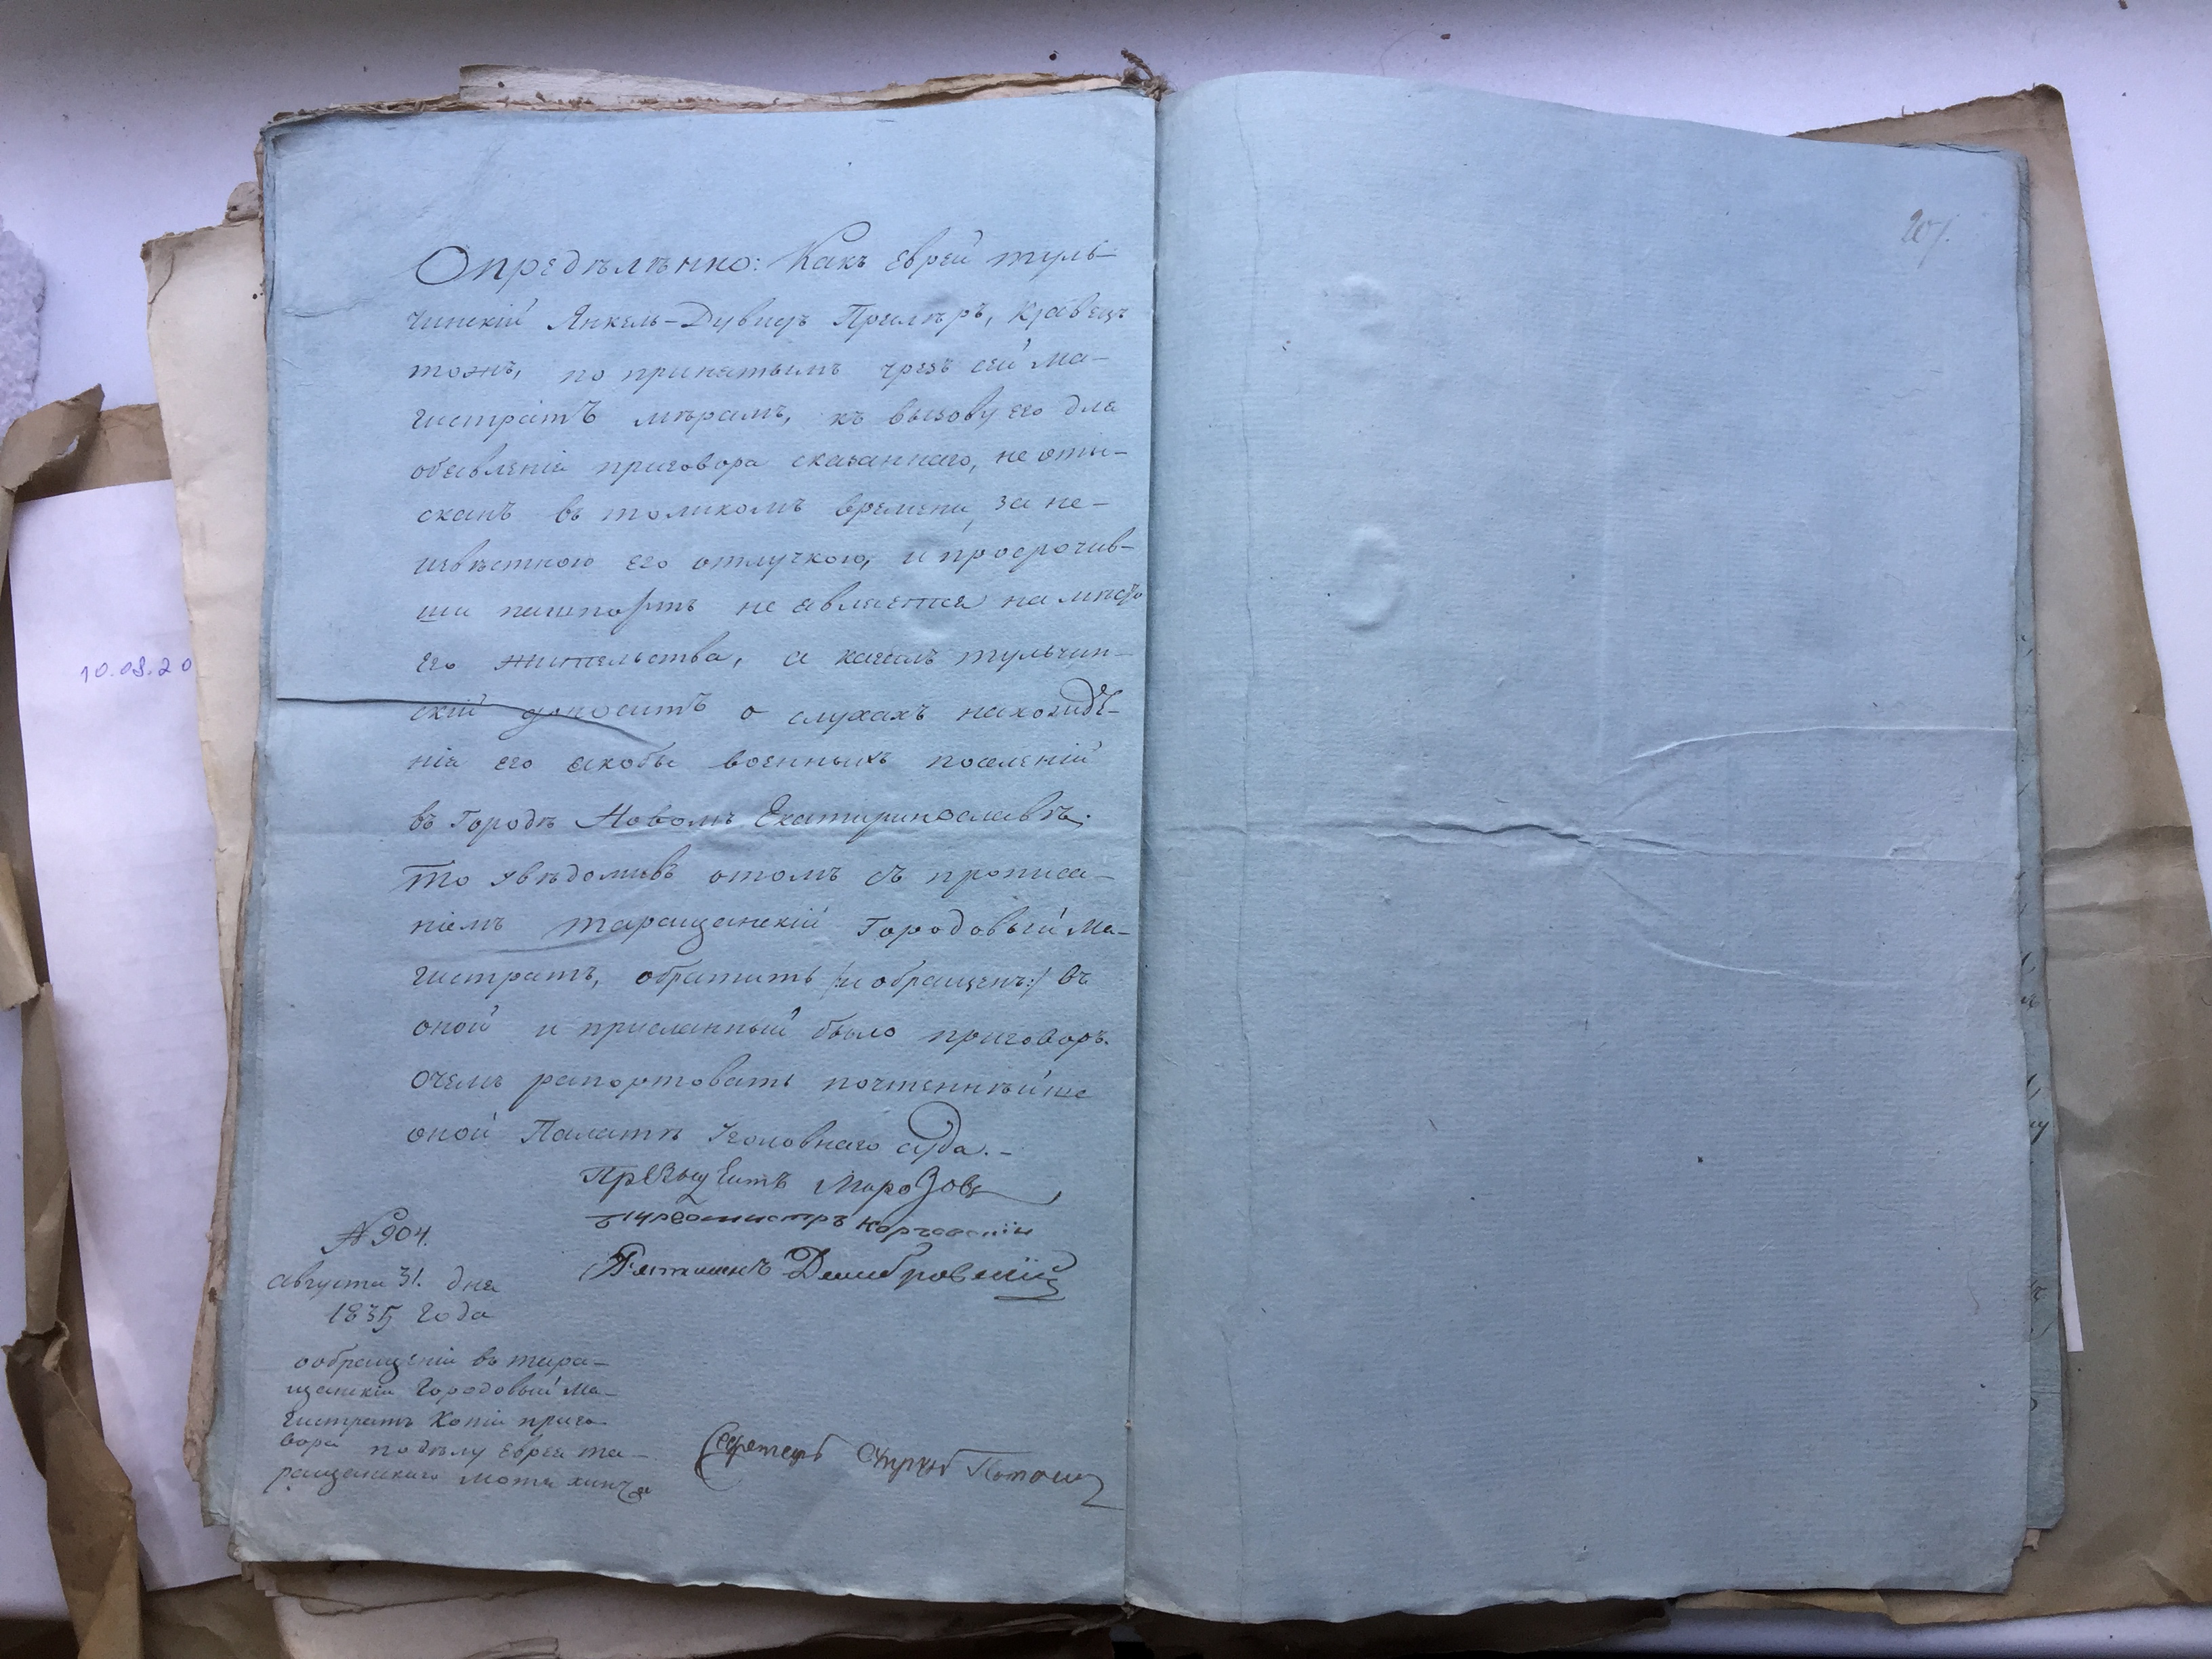 Опредѣлѣнно: Какъ еврей туль-
чинскій Янкель-Дувидъ Прилѣръ, Кравецъ
тожъ, по принятымъ чрезъ сей Ма-
гистратъ мѣрамъ, къ вызову его для
обявленія приговора сказаннаго, не оты-
сканъ въ толикомъ времени, за не-
извѣстною его отлучкою, и просрочив-
ши пашпортъ не является на мѣсто
его жительства, а кагалъ тульчин-
скій доноситъ о слухахъ нахожде-
нія его якобы военныхъ поселеній
въ Городѣ Новомъ Екатеринославѣ.
То увѣдомивъ отомъ съ прописа-
ніемъ таращанскій Городовый Ма-
гистратъ, обратить /:и обращенъ:/ въ
оной и присланный было приговоръ.
Очемъ рапортовать почтеннѣйше
оной Палатѣ Уголовнаго суда.-
Презыдентъ Марозовъ
Бургомистръ
Ратманъ Домбровскій
№ 904.
августа 31. дня
1835 Года
ообращеніи въ тара-
щанскій Городовый Ма-
гистратъ Копіи приго-
вора подѣлу еврея та-
ращанскаго Мотя
Секретарь
207.
10.08.20